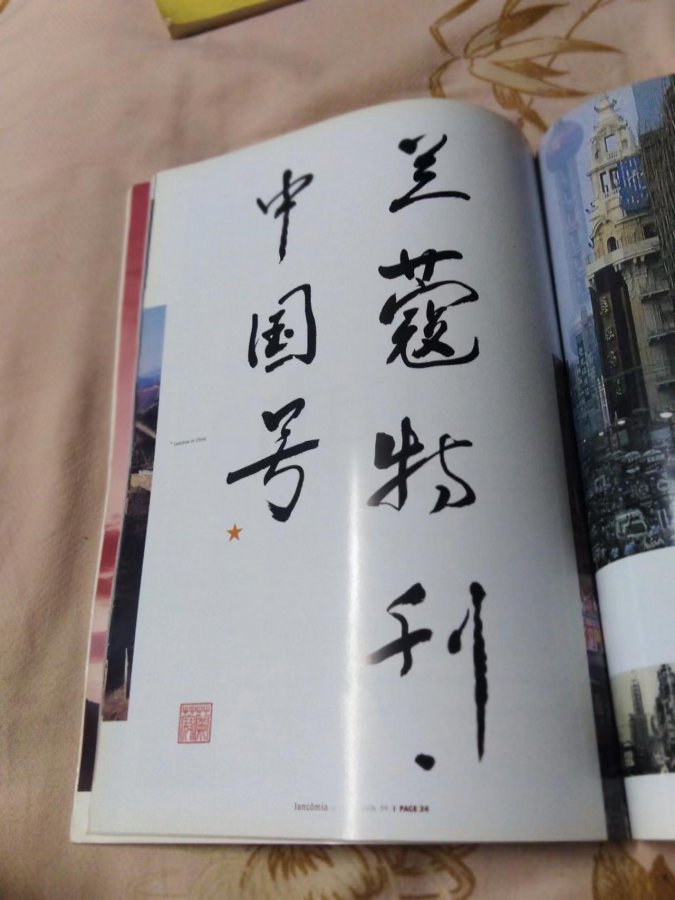 兰蔻特刊·
中国号
* Lancôme in China
lancômia
39 | PAGE 34